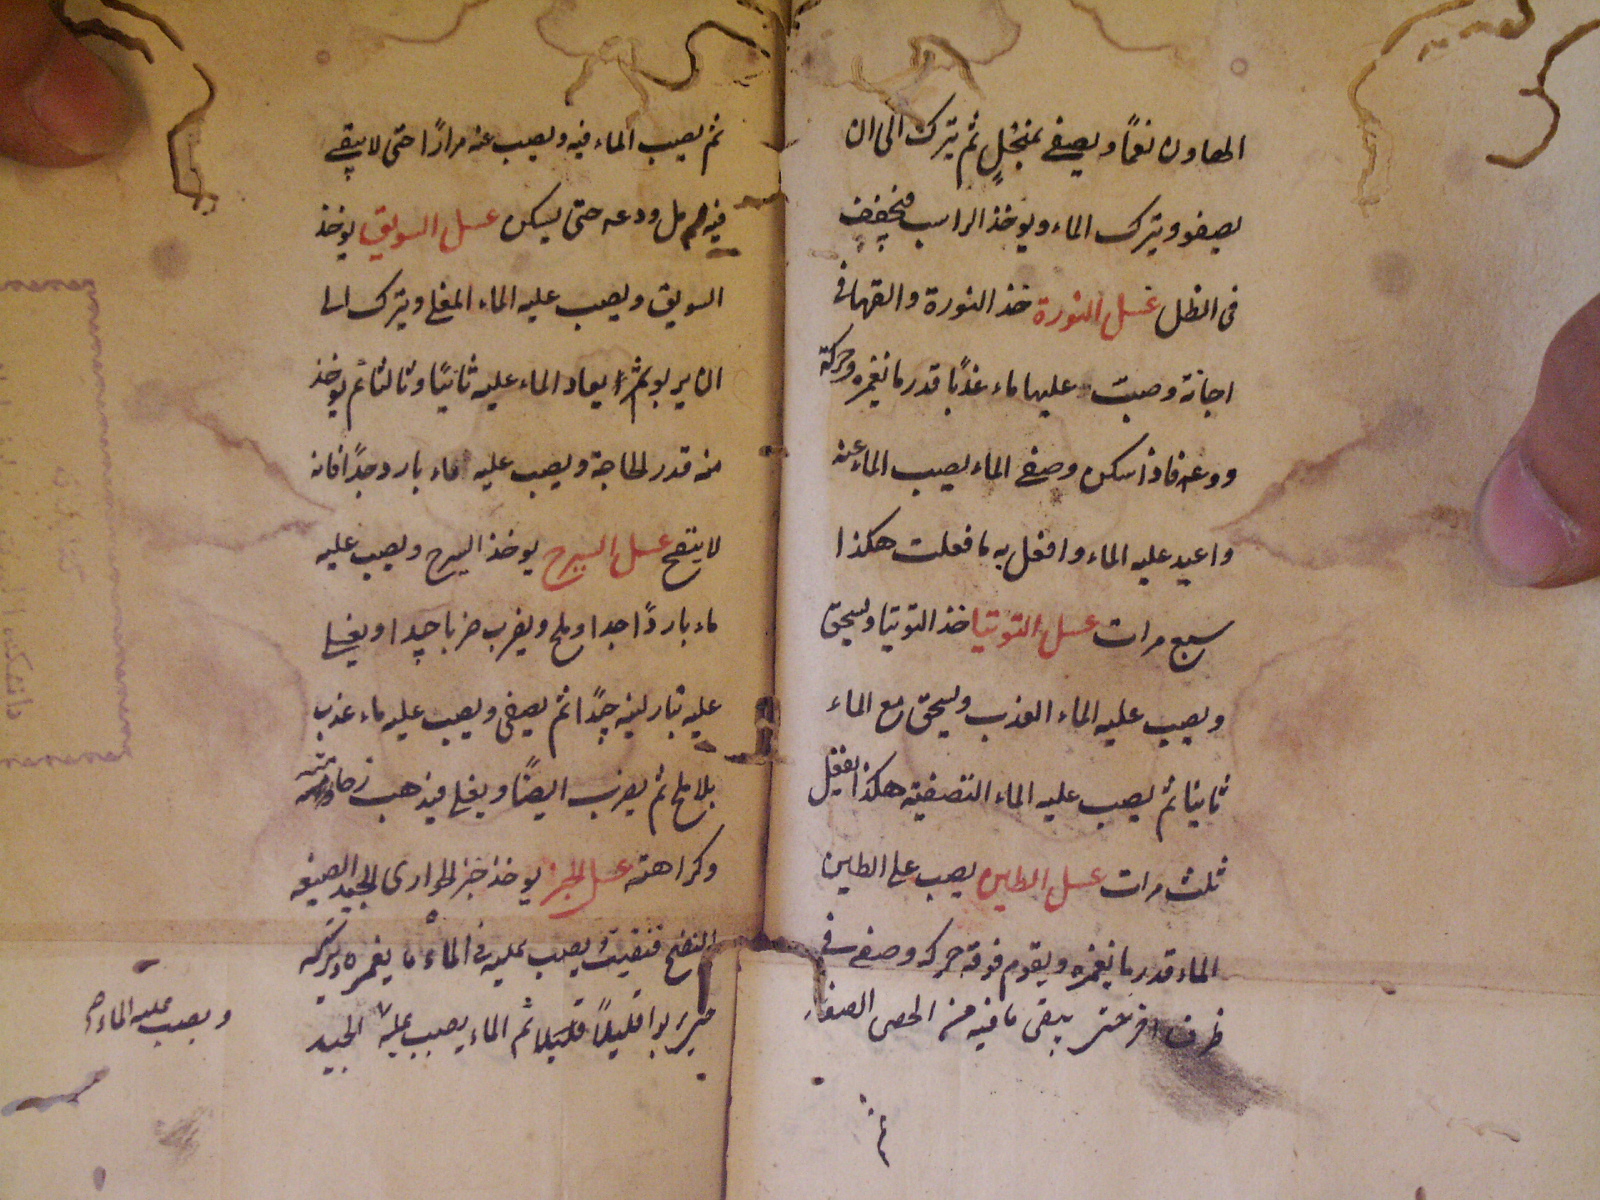 الهاون نعمًا ويصفى بمنخل ثم يترك الى ان
يصفو ويترك الماء ويوخذ الراسب فيجفف
فى الظل غسل النورة خذ النورة والقها فى
اجانة وصبت عليها ماء عذبًا قدر ما يغمره وحركه
ودعه فاذا سكن وصفى الماء يصب الماء عنه
واعيد عليه الماء وافعل به ما فعلت هكذا
سبع مرات غسل التوتيا خذ التوتيا ويسحق
ويصب عليه الماء العذب ويسحق مع الماء
ثانيا ثم يصب عليه الماء التصفيته هكذا يفعل
ثلث مرات غسل الطين يصب على الطين
الماء قدر ما يغمره ويقوم فوقه حركه وصفى فى
ظرف اخر حتى يبقى ما فيه من الحصى الصغار
ثم
ثم يصب الماء فيه ويصب عنه مرارًا حتى لا يبقى
فيه رمل ودعه حتى يسكن غسل السويق يوخذ
السويق ويصب عليه الماء المغلى ويترك الى
ان يربو ثم يعاد الماء عليه ثانيًا وثالثا ثم يوخذ
منه قدر الحاجة ويصب عليه ماء بارد جدًا فانه
لا ينفخ غسل السيرج يوخذ السيرج ويصب عليه
ماء باردًا جدا وملح ويضرب ضربا جيدا ويغلى
عليه بنار لينه جدًا ثم يصفى ويصب عليه ماء عذب
بلا ملح ثم يضرب ايضًا ويغلى فيذهب زخامته
وكراهته غسل الخبز يوخذ خبز الحوارى الجيد الصنعه
النضج فتفتت ويصب عليه فى الماء ما يغمره ويتركه
حتى يربوا قليلاً قليلا ثم الماء يصب عليه الجيد
ويصب عليه الماء
دانشكده